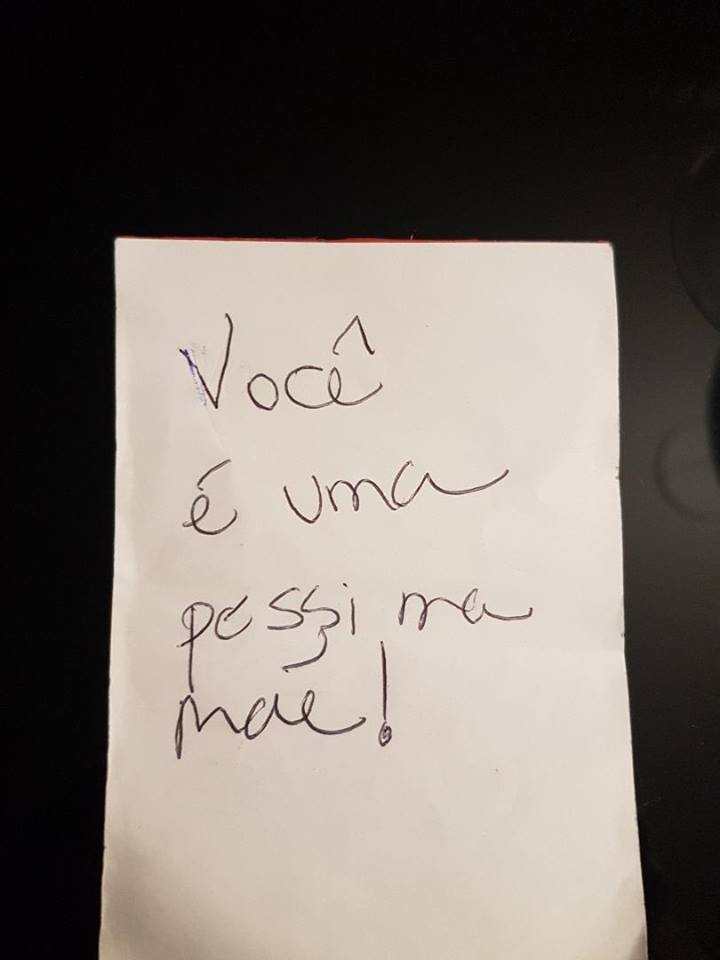 Você
é uma
pessima
mãe!